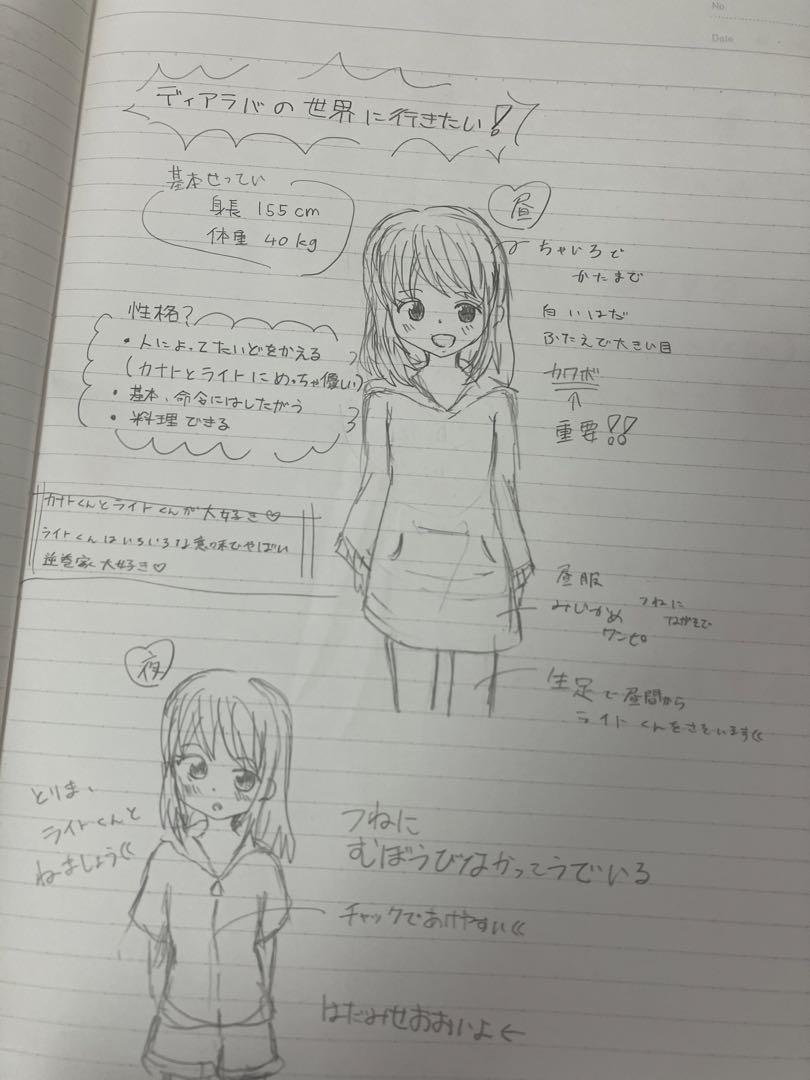 No.
Date
ディアラバの世界に行きたい!
基本せってい
身長 155cm
体重 40kg
昼
ちゃいろで
かたまで
白いはだ
ふたえで大きい目
カワボ
↑
重要!!
性格?
・人によってたいどをかえる
(カナトとライトにめっちゃ優しい)
・基本、命令にはしたがう
・料理できる
カナトくんとライトくんが大好き♡
ライトくんはいろいろな意味でやばい
逆巻家大好き♡
昼服
みじかめ
ワンピ
つねに
ながそで
生足で昼間から
ライトくんをさそいます
夜
とりま、
ライトくんと
ねましょう
つねに
むぼうびなかっこうでいる
チャックであけやすい
はだみせおおいよ←